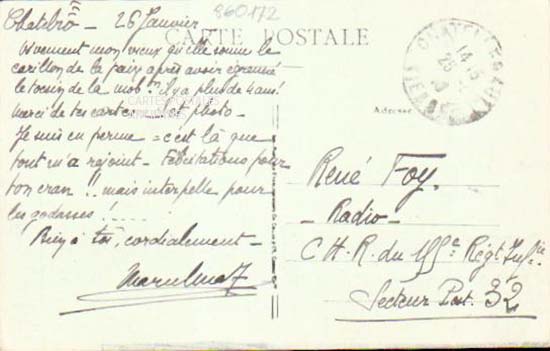 860172
CARTE POSTALE
Chatelrô - 26 Janvier
vivement mon vieux qu'elle sonne le
carillon de la paix après avoir égrené
le tocsin de la mob ! il y a plus de 4 ans !
merci de tes cartes et photo -
Je suis en perme = c'est là que
tout m'a rejoint - Félicitations pour
ton cran !! mais interpelle pour
les godasses !
Bien à toi, cordialement -
Adresse
René Foy.
- Radio -
C.H.R. du 155e Régt Infie
Secteur Post. 32
CHATELLERAULT
VIENNE